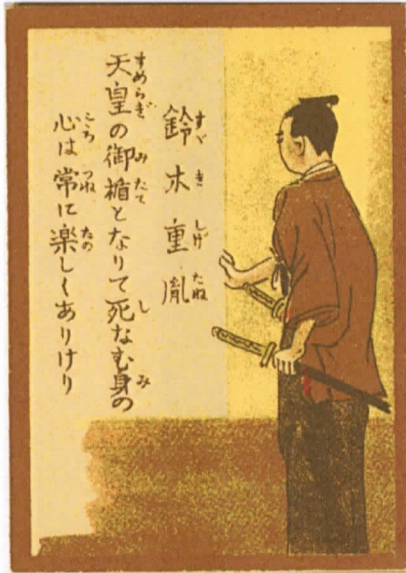 鈴木重胤
すゞきしげたね
天皇の御楯となりて死なむ身の
すめらぎ みたて し み
心は常に楽しくありけり
こゝろ つね たの